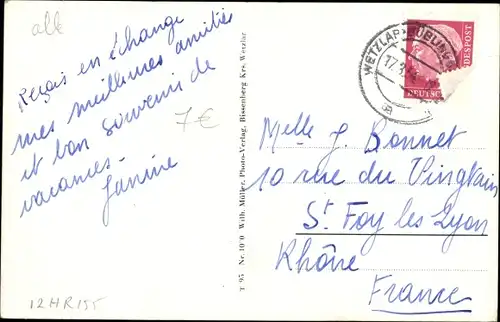 all
Reçois en échange
mes meilleures amitiés
et bon souvenir de
vacances -
Janine
7€
12HR155
T 95 Nr. 10*0 Wilh. Müller, Photo-Verlag, Bissenberg Krs. Wetzlar
WETZLAR
DEUTSCHE BUNDESPOST
Melle J. Bonnet
10 rue du Vingtain
St Foy les Lyon
Rhône
France